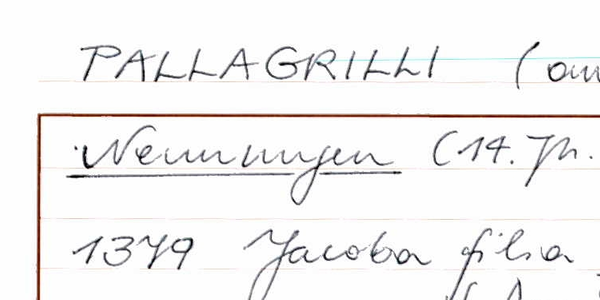 PALLAGRILLI (au
Nennungen (14. Jh.
1379 Jacoba filia